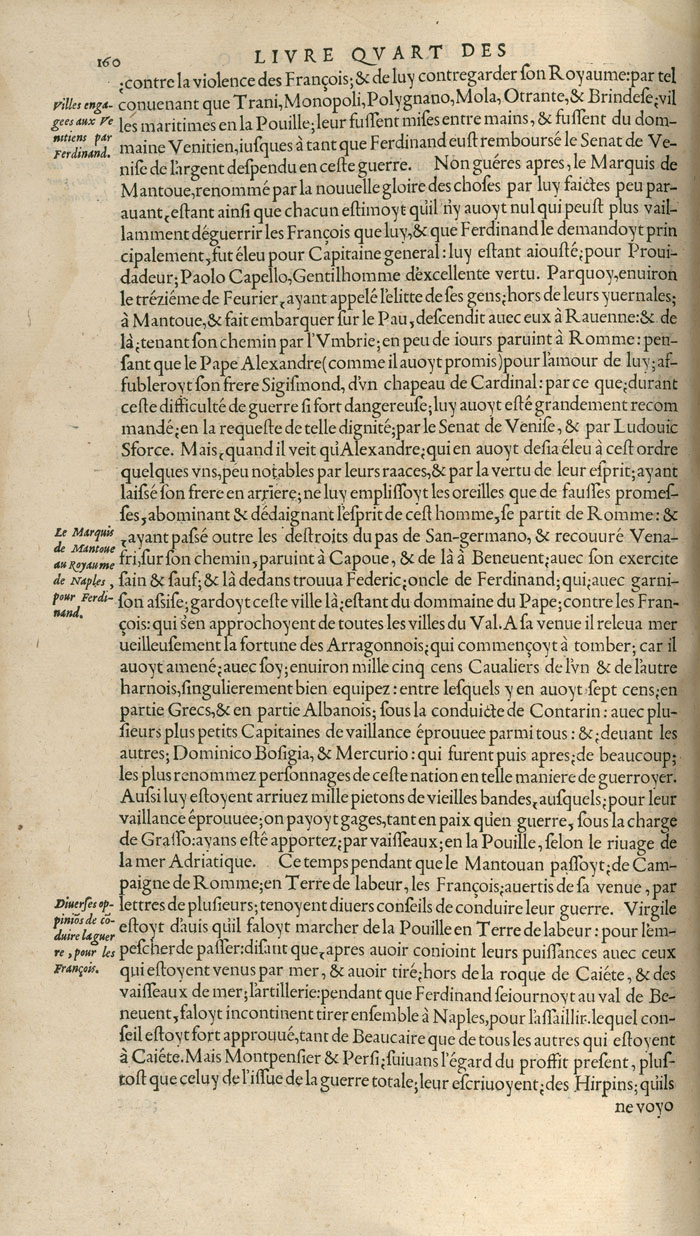 160
LIVRE QVART DES
¿contre la violence des François; & de luy contregarder ſon Royaume: par tel
Villes enga-
gees aux Ve
nitiens par
Ferdinand.
conuenant que Trani, Monopoli, Polygnano, Mola, Otrante, & Brindeſe; vil
les maritimes en la Pouille; leur fuſſent miſes entre mains, & fuſſent du dom-
maine Venitien, iuſques à tant que Ferdinand euſt rembourſé le Senat de Ve-
niſe de l'argent deſpendu en ceſte guerre. Non guéres apres, le Marquis de
Mantoue, renommé par la nouuelle gloire des choſes par luy faictes peu par-
auant, eſtant ainſi que chacun eſtimoyt qu'il n'y auoyt nul qui peuſt plus vail-
lamment déguerrir les François que luy, & que Ferdinand le demandoyt prin
cipalement, fut éleu pour Capitaine general: luy eſtant aiouſté; pour Proui-
dadeur; Paolo Capello, Gentilhomme d'excellente vertu. Parquoy, enuiron
le tréziéme de Feurier, ayant appelé l'elitte de ſes gens; hors de leurs yuernales;
à Mantoue, & fait embarquer ſur le Pau, deſcendit auec eux à Rauenne: & de
là; tenant ſon chemin par l'Vmbrie; en peu de iours paruint à Romme: pen-
ſant que le Pape Alexandre (comme il auoyt promis) pour l'amour de luy; af-
fubleroyt ſon frere Sigiſmond, d'vn chapeau de Cardinal: par ce que; durant
ceſte difficulté de guerre ſi fort dangereuſe; luy auoyt eſté grandement recom
mandé; en la requeſte de telle dignité; par le Senat de Veniſe, & par Ludouic
Sforce. Mais, quand il veit qu'Alexandre; qui en auoyt deſia éleu à ceſt ordre
quelques vns, peu notables par leurs raaces, & par la vertu de leur eſprit; ayant
laiſſé ſon frere en arriere; ne luy empliſſoyt les oreilles que de fauſſes promeſ-
ſes, abominant & dédaignant l'eſprit de ceſt homme, ſe partit de Romme: &
Le Marquis
de Mantoue
au Royaume
de Naples,
pour Ferdi-
nand.
, ayant paſſé outre les deſtroits du pas de San-germano, & recouuré Vena-
fri, ſur ſon chemin, paruint à Capoue, & de là à Beneuent; auec ſon exercite
ſain & ſauf; & là dedans trouua Federic; oncle de Ferdinand; qui; auec garni-
ſon aſſiſe; gardoyt ceſte ville là; eſtant du dommaine du Pape; contre les Fran-
çois: qui s'en approchoyent de toutes les villes du Val. A ſa venue il releua mer
ueilleuſement la fortune des Arragonnois; qui commençoyt à tomber; car il
auoyt amené; auec ſoy; enuiron mille cinq cens Caualiers de l'vn & de l'autre
harnois, ſingulierement bien equipez: entre leſquels y en auoyt ſept cens; en
partie Grecs, & en partie Albanois; ſous la conduicte de Contarin: auec plu-
ſieurs plus petits Capitaines de vaillance éprouuee parmi tous: &; deuant les
autres; Dominico Boſigia, & Mercurio: qui furent puis apres; de beaucoup;
les plus renommez perſonnages de ceſte nation en telle maniere de guerroyer.
Auſsi luy eſtoyent arriuez mille pietons de vieilles bandes, auſquels; pour leur
vaillance éprouuee; on payoyt gages, tant en paix qu'en guerre, ſous la charge
de Graſſo: ayans eſté apportez; par vaiſſeaux; en la Pouille, ſelon le riuage de
la mer Adriatique. Ce temps pendant que le Mantouan paſſoyt; de Cam-
paigne de Romme; en Terre de labeur, les François; auertis de ſa venue, par
Diuerſes op-
piniōs de cō-
duire la guer
re, pour les
François.
lettres de pluſieurs; tenoyent diuers conſeils de conduire leur guerre. Virgile
eſtoyt d'auis qu'il faloyt marcher de la Pouille en Terre de labeur: pour l'em-
peſcher de paſſer: diſant que, apres auoir conioint leurs puiſſances auec ceux
qui eſtoyent venus par mer, & auoir tiré; hors de la roque de Caiéte, & des
vaiſſeaux de mer; l'artillerie: pendant que Ferdinand ſeiournoyt au val de Be-
neuent, faloyt incontinent tirer enſemble à Naples, pour l'aſſaillir. lequel con-
ſeil eſtoyt fort approuué, tant de Beaucaire que de tous les autres qui eſtoyent
à Caiéte. Mais Montpenſier & Perſi; ſuiuans l'égard du proffit preſent, pluſ-
toſt que celuy de l'iſſue de la guerre totale; leur eſcriuoyent; des Hirpins; qu'ils
ne voyo